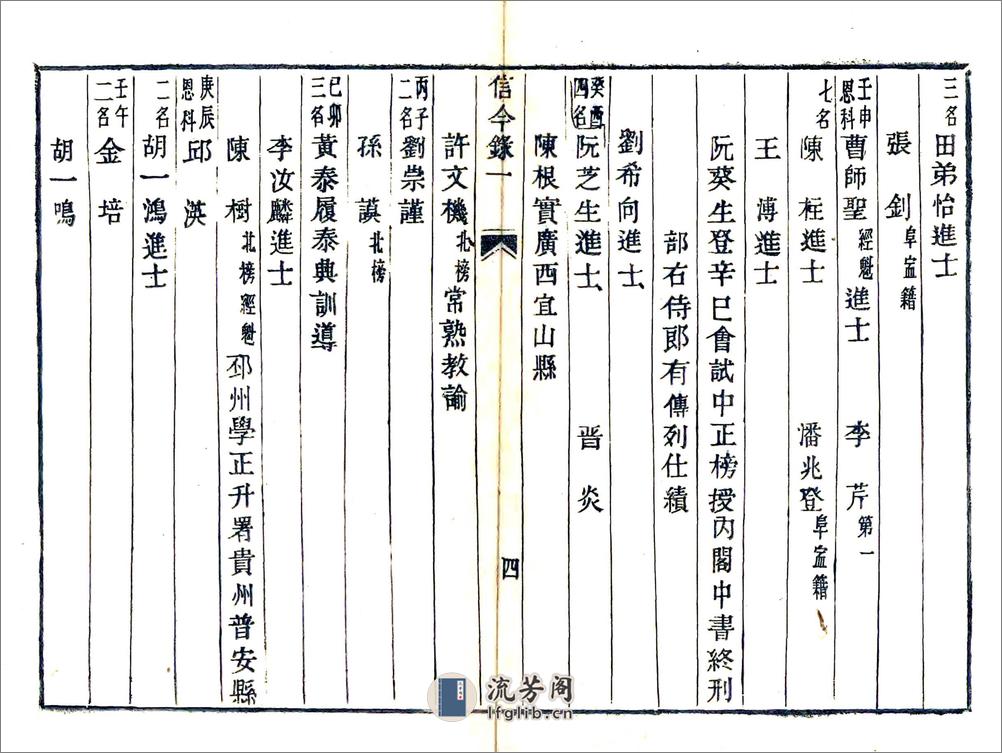 三名田弟怡進士
張釗阜寍籍
壬申恩科曹師聖經魁進士 李芹第一
七名陳柱進士 潘兆登阜寍籍
王溥進士
阮葵生登辛巳會試中正榜授內閣中書終刑
部右侍郎有傳列仕績
劉希向進士
癸酉四名阮芝生進士 晋炎
陳根實廣西宜山縣
信今錄一 四
許文機北榜常熟教諭
丙子二名劉崇謹
孫謨北榜
己卯三名黃泰履泰興訓導
李汝麟進士
陳樹北榜經魁邳州學正升署貴州普安縣
庚辰恩科邱渶
二名胡一鴻進士
壬午二名金培
胡一鳴
流芳阁
lfglib.cn